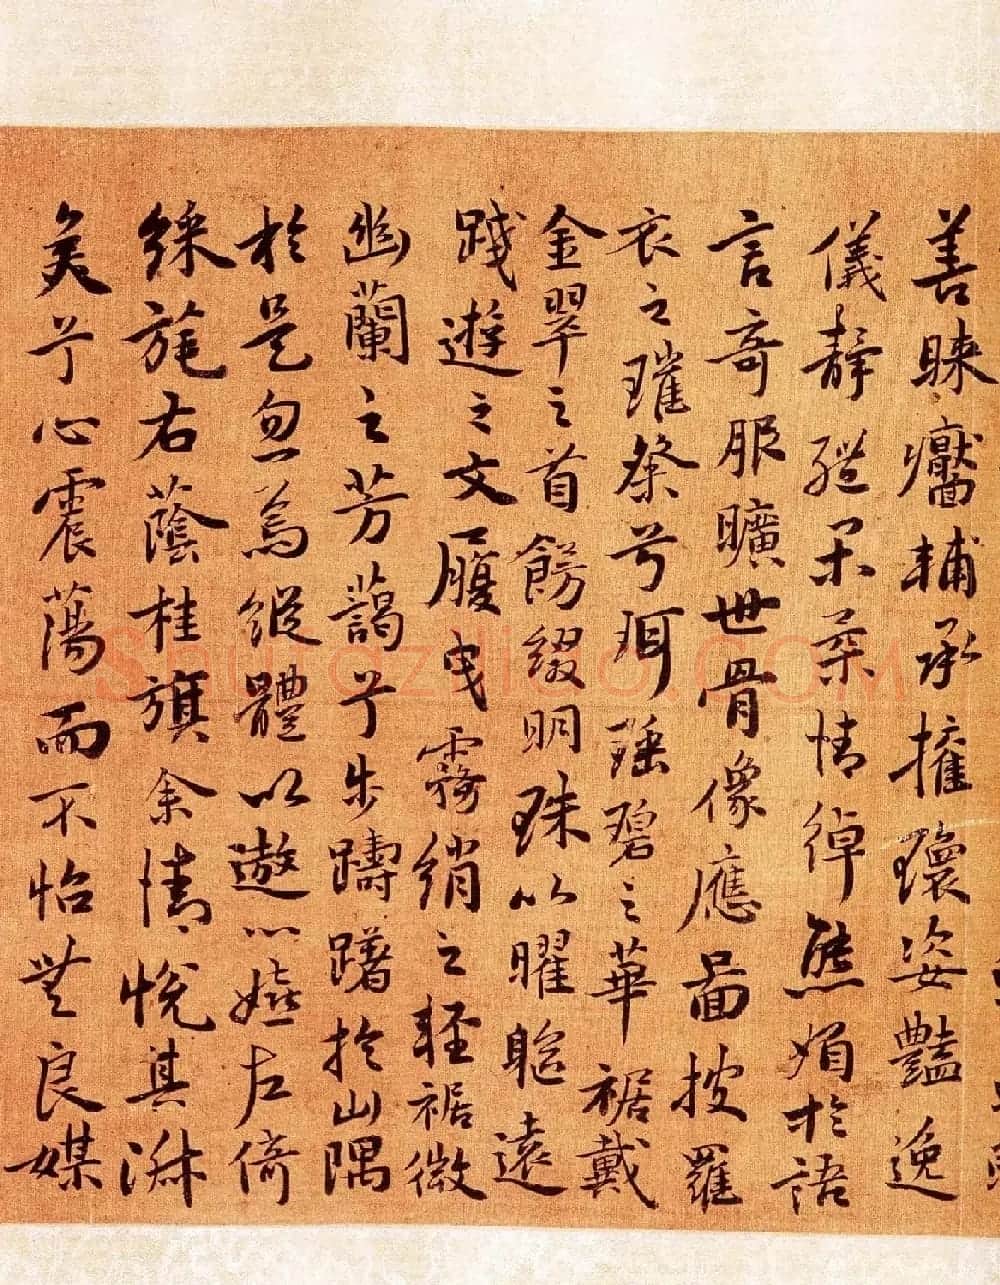 善睞靨輔承權瓌姿豔逸
儀靜體閑柔情綽態媚於語
言奇服曠世骨像應圖披羅
衣之璀粲兮珥瑤碧之華裾戴
金翠之首飾綴明珠以曜軀遠
踐遊之文履曳霧綃之輕裾微
幽蘭之芳藹兮步躊躇於山隅
於是忽焉縱體以遨以嬉左倚
綵旄右蔭桂旗余情悅其淋
美兮心震蕩而不怡無良媒
Shufaziliao.COM